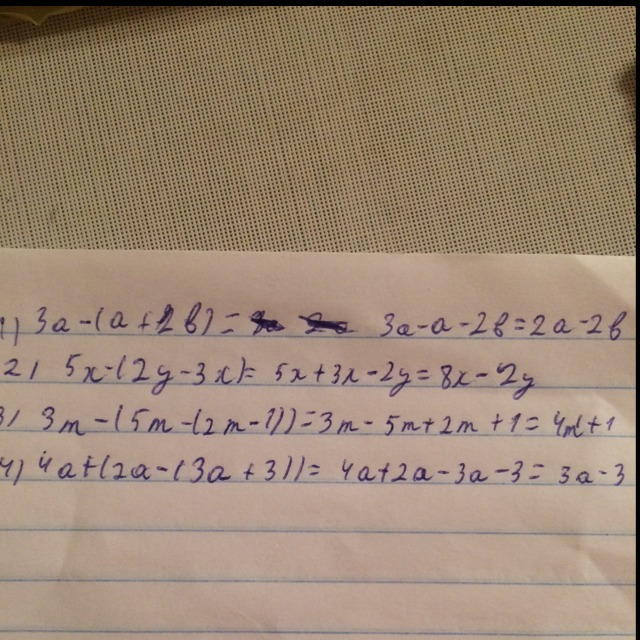 1) 3a-(a+2b)= 3a-a-2b=2a-2b
2) 5x-(2y-3x)= 5x+3x-2y=8x-2y
3) 3m-(5m-(2m-1))=3m-5m+2m+1=4m+1
4) 4a+(2a-(3a+3))= 4a+2a-3a-3= 3a-3